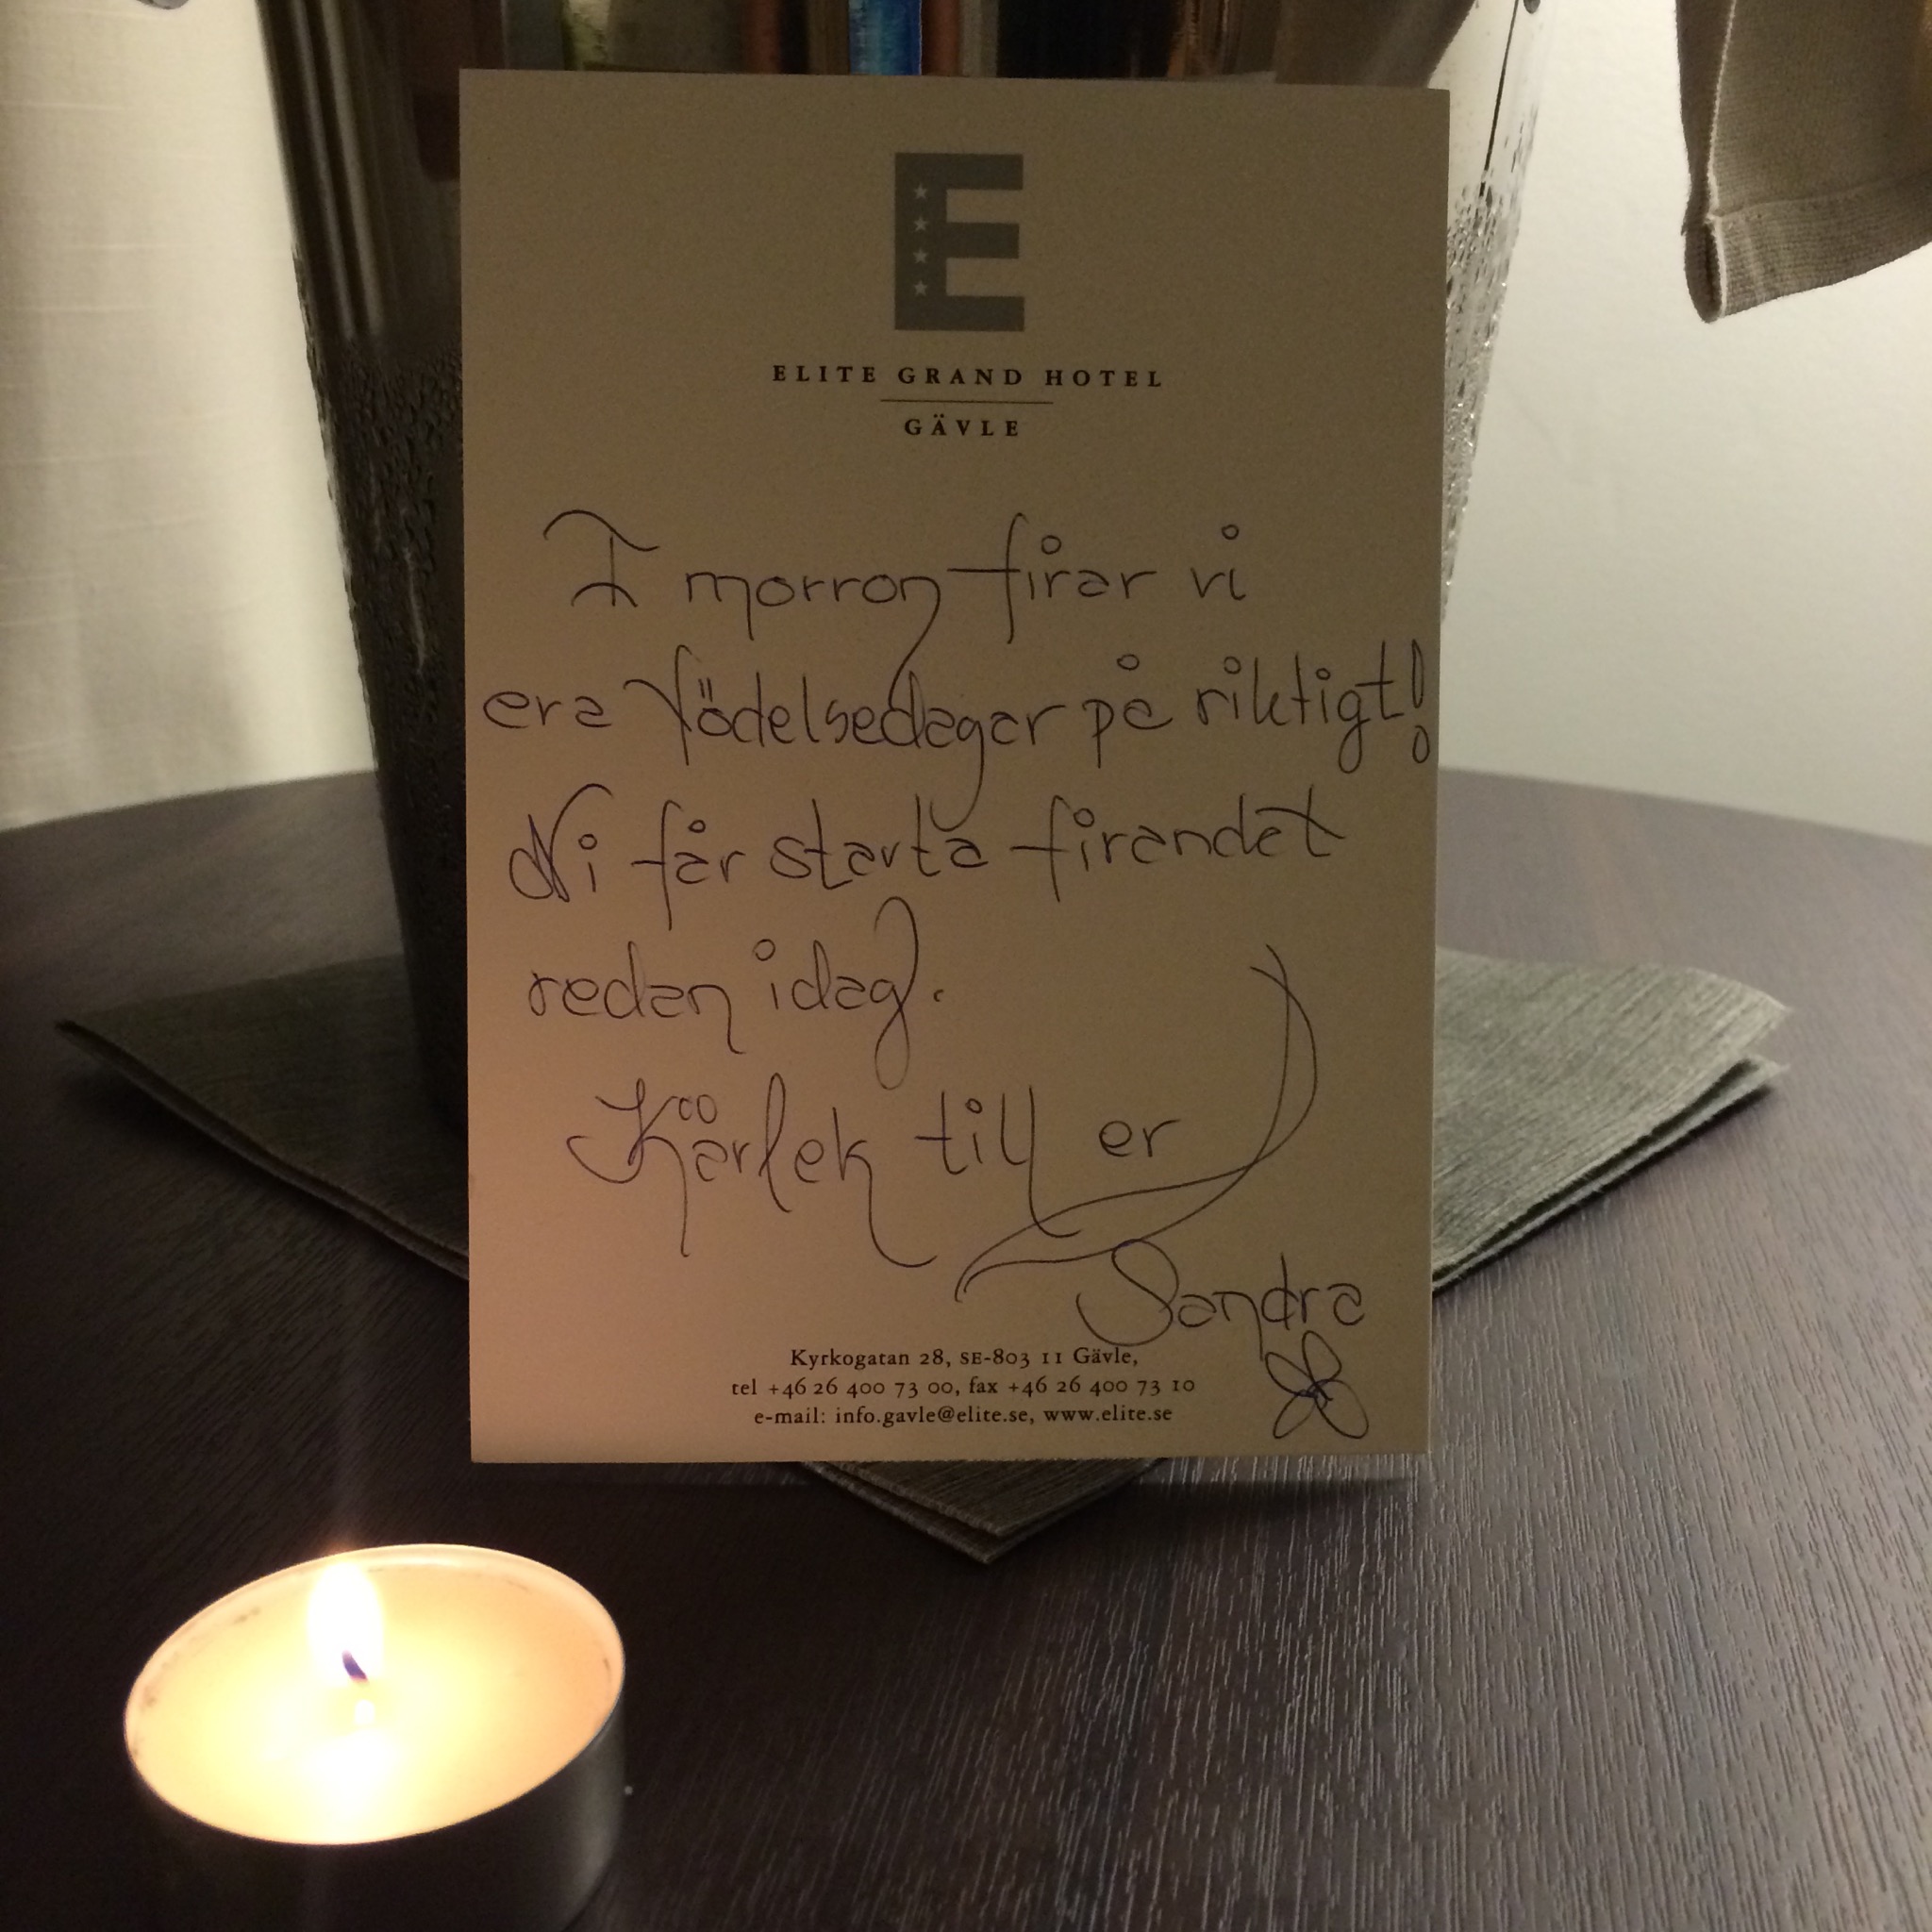 E
ELITE GRAND HOTEL
GÄVLE
I morron firar vi
era födelsedagar på riktigt!
Ni får starta firandet
redan idag.
Kärlek till er
Sandra
Kyrkogatan 28, SE-803 11 Gävle,
tel +46 26 400 73 00, fax +46 26 400 73 10
e-mail: info.gavle@elite.se, www.elite.se